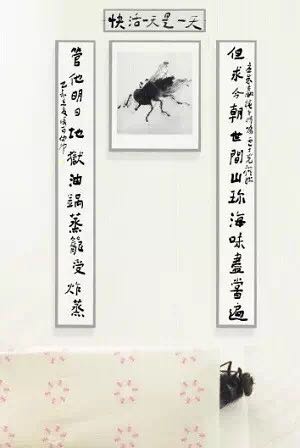 快活一天是一天
但求今朝世間山珍海味盡嘗遍
管他明日地獄油鍋蒸籠受炸蒸